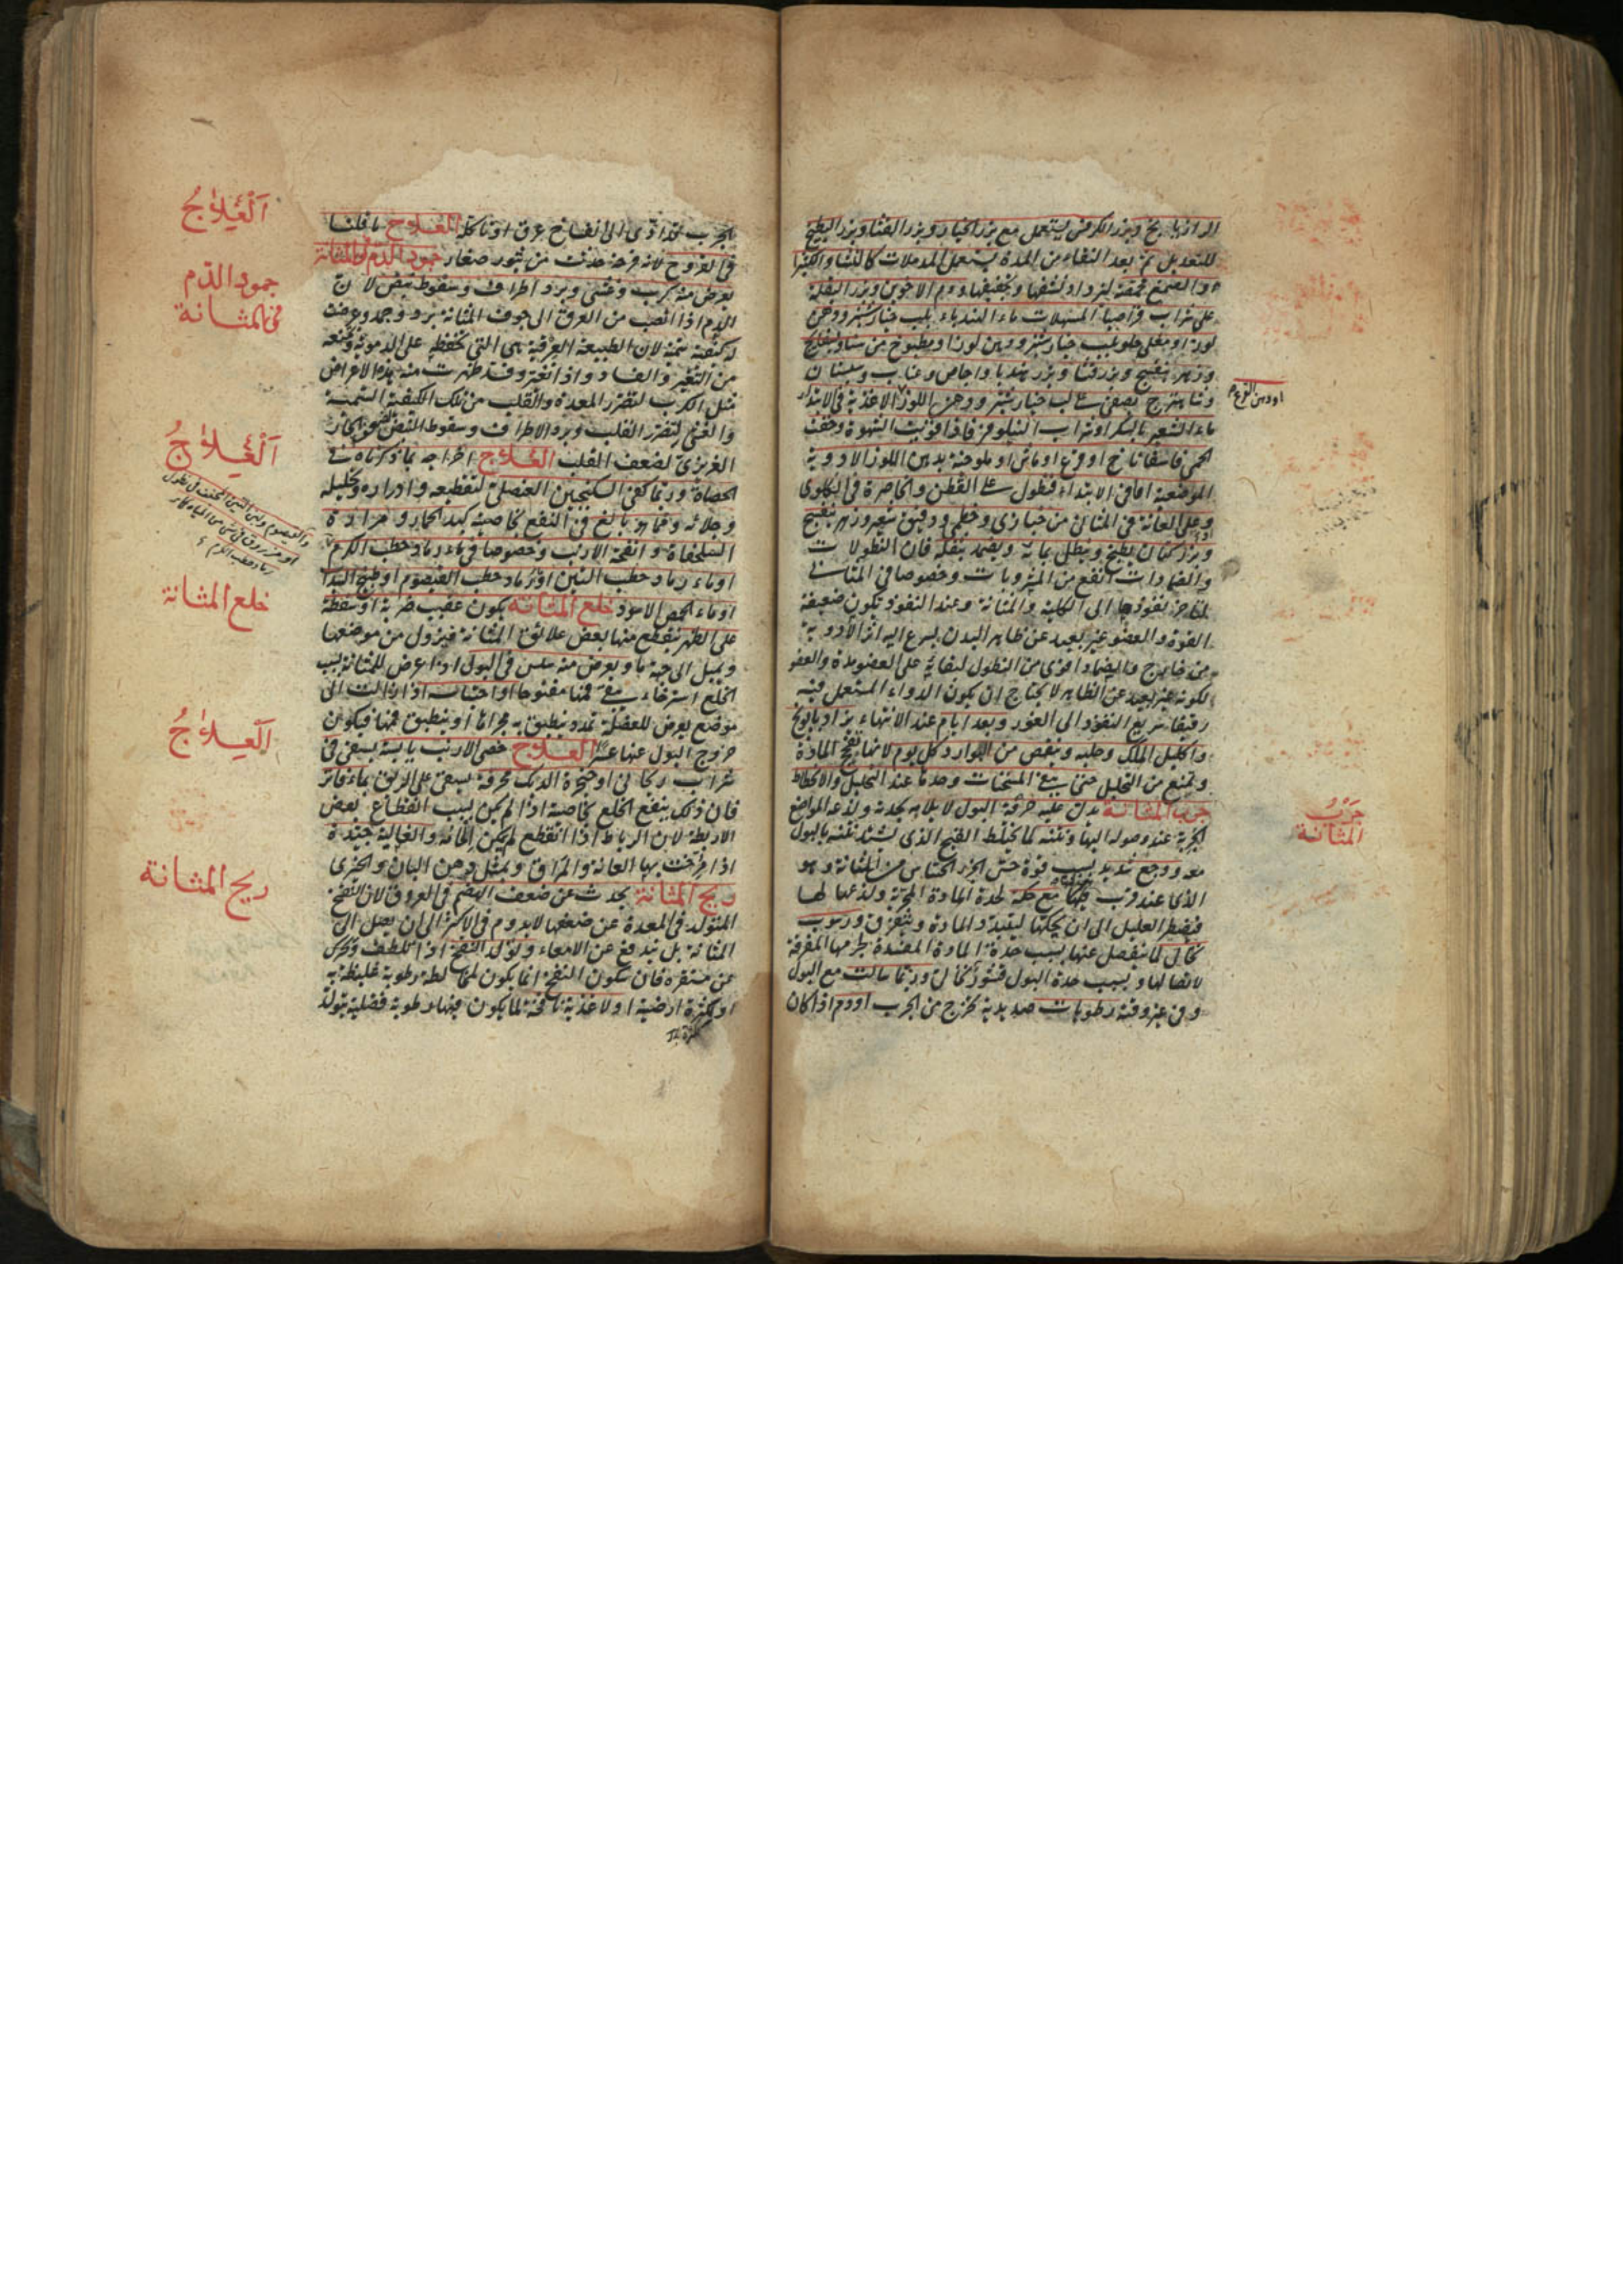 الرازيانج وبزر الكرفس يستعمل مع بزر الخيار وبزر القثاء وبزر البطيخ
للتعديل ثم بعد النقاء من المدة يستعمل المدملات كالنشا والكثيرا
والصمغ ودم الاخوين وبزر البقلة
على شراب المسهلات ماء الهندباء بلب خيارشنبر ودهن
لوز او مغلى حلو بلب خيارشنبر ودهن لوز او مطبوخ من سنا وبسفايج
وزهر بنفسج وبزر قثا وبزر هندبا واجاص وعناب وسبستان
وشاهترج يصفى على لب خيارشنبر ودهن اللوز الاغذية في الابتداء
او دهن القرع
ماء الشعير بالسكر او شراب النيلوفر فاذا قويت الشهوة وخفت
الحمى فاسفاناخ او قرع او ماش او ملوخية بدهن اللوز الادوية
الموضعية اما في الابتداء فنطول على القطن والخاصرة في الكلوى
وعلى العانة في المثانى من خبازى وخطمى ودقيق شعير وزهر بنفسج
وبزر كتان يطبخ وينطل بمائه ويضمد بثفله فان النطولات
والضمادات انفع من المشروبات وخصوصا في المثانى
لتاخر نفوذها الى الكلية والمثانة وعند النفوذ تكون ضعيفة
القوة والعضو غير بعيد عن ظاهر البدن يسرع اليه اثر الادوية
من خارج والضماد اقوى من النطول لبقائه على العضو مدة والعضو
لكونه غير بعيد عن الظاهر لا يحتاج ان يكون الدواء المستعمل فيه
رقيقا سريع النفوذ الى الغور وبعد ايام عند الانتهاء يزاد بابونج
واكليل الملك وحلبه وينقص من البوارد كل يوم لانها تفجج المادة
وتمنع من التحليل حتى يبقى المسخنات وحدها عند التحليل والانحطاط
جرب المثانة يدل عليه حرقة البول لايلامه بحدته ولذعه المواضع
جرب
المثانة
الجربة عند وصوله اليها ونتنه لما يختلط القيح الذى يشتد نتنه بالبول
معه ووجع شديد بسبب قوة حس الجزء الحساس من المثانة وهو
الذى عند قرب مع حكة لحدة المادة الجربة ولذعها لها
فيضطر العليل الى ان يحكها ليتبدد المادة ويتفرق ورسوب
نخالى لما ينفصل عنها بسبب حدة المادة المفسدة لجرمها المفرقة
لاتصالها وبسبب حدة البول قشور نخالى وربما سالت مع البول
وفي غير وقته رطوبات صديدية تخرج من الجرب او دم اذا كان
الجرب قد ادى الى انفتاح عرق او تاكل العلاج ما قلنا
العلاج
في القروح لانه قرحة حدثت من بثور صغار جمود الدم في المثانة
جمود الدم
في المثانة
يعرض منه كرب وغشى وبرد اطراف وسقوط نبض لان
الدم اذا انصب من العروق الى جوف المثانة برد وجمد وعرضت
له كيفية سمية لان الطبيعة العرقية هى التي تحفظه على الدموية وتمنعه
من التغير والفساد واذا تغير وفسد ظهرت منه هذه الاعراض
مثل الكرب لتضرر المعدة والقلب من تلك الكيفية السمية
والغشى لتضرر القلب وبرد الاطراف وسقوط النبض الحار
الغريزى لضعف القلب العلاج اخراجه بما ذكرناه في
العلاج
الحصاة وربما كفى السكنجبين العنصلى لتقطيعه وادراره وتحليله
وجلائه ومما هو بالغ في النفع بخاصيته كبد الحمار ومرارة
السلحفاة وانفحة الارنب وخصوصا في ماء رماد حطب الكرم
او ماء رماد حطب التين او رماد حطب القيصوم او طبيخ
او ماء الحمص الاسود خلع المثانة يكون عقيب ضربة او سقطة
خلع المثانة
على الظهر فينقطع منها بعض علائق المثانة فيزول من موضعها
ويميل الى جهة ما ويعرض منه سلس في البول اذا عرض للمثانة بسبب
الخلع استرخاء يبقى فمها مفتوحا او احتباسه اذا زالت الى
موضع يعرض للعضلة تمدد ينطبق به مجراها او ينطبق فمها فيكون
خروج البول عنها عسرا العلاج خصى الارنب يابسة يسقى في
العلاج
شراب ريحانى او حنجرة الديك محرقة يسقى على الريق بماء فاتر
فان ذلك ينفع الخلع بخاصية اذا لم يكن بسبب انقطاع بعض
الاربطة لان الرباط اذا انقطع لم يمكن والغالية جيدة
اذا مرخت بها العانة والمراق وبمثل دهن البان والخيرى
ريح المثانة يحدث عن ضعف الهضم في العروق لان النفخ
ريح المثانة
المتولد في المعدة عن ضعفها لا يدوم في الاكثر الى ان يصل الى
المثانة بل يندفع عن الامعاء وتولد النفخ اذا تلطف وتحرك
عن مستقره فان سكون النفخ انما يكون لمخالطة رطوبة غليظة به
او لكثرة ارضية او لاغذية نافخة لما يكون فيها رطوبة فضلية يتولد